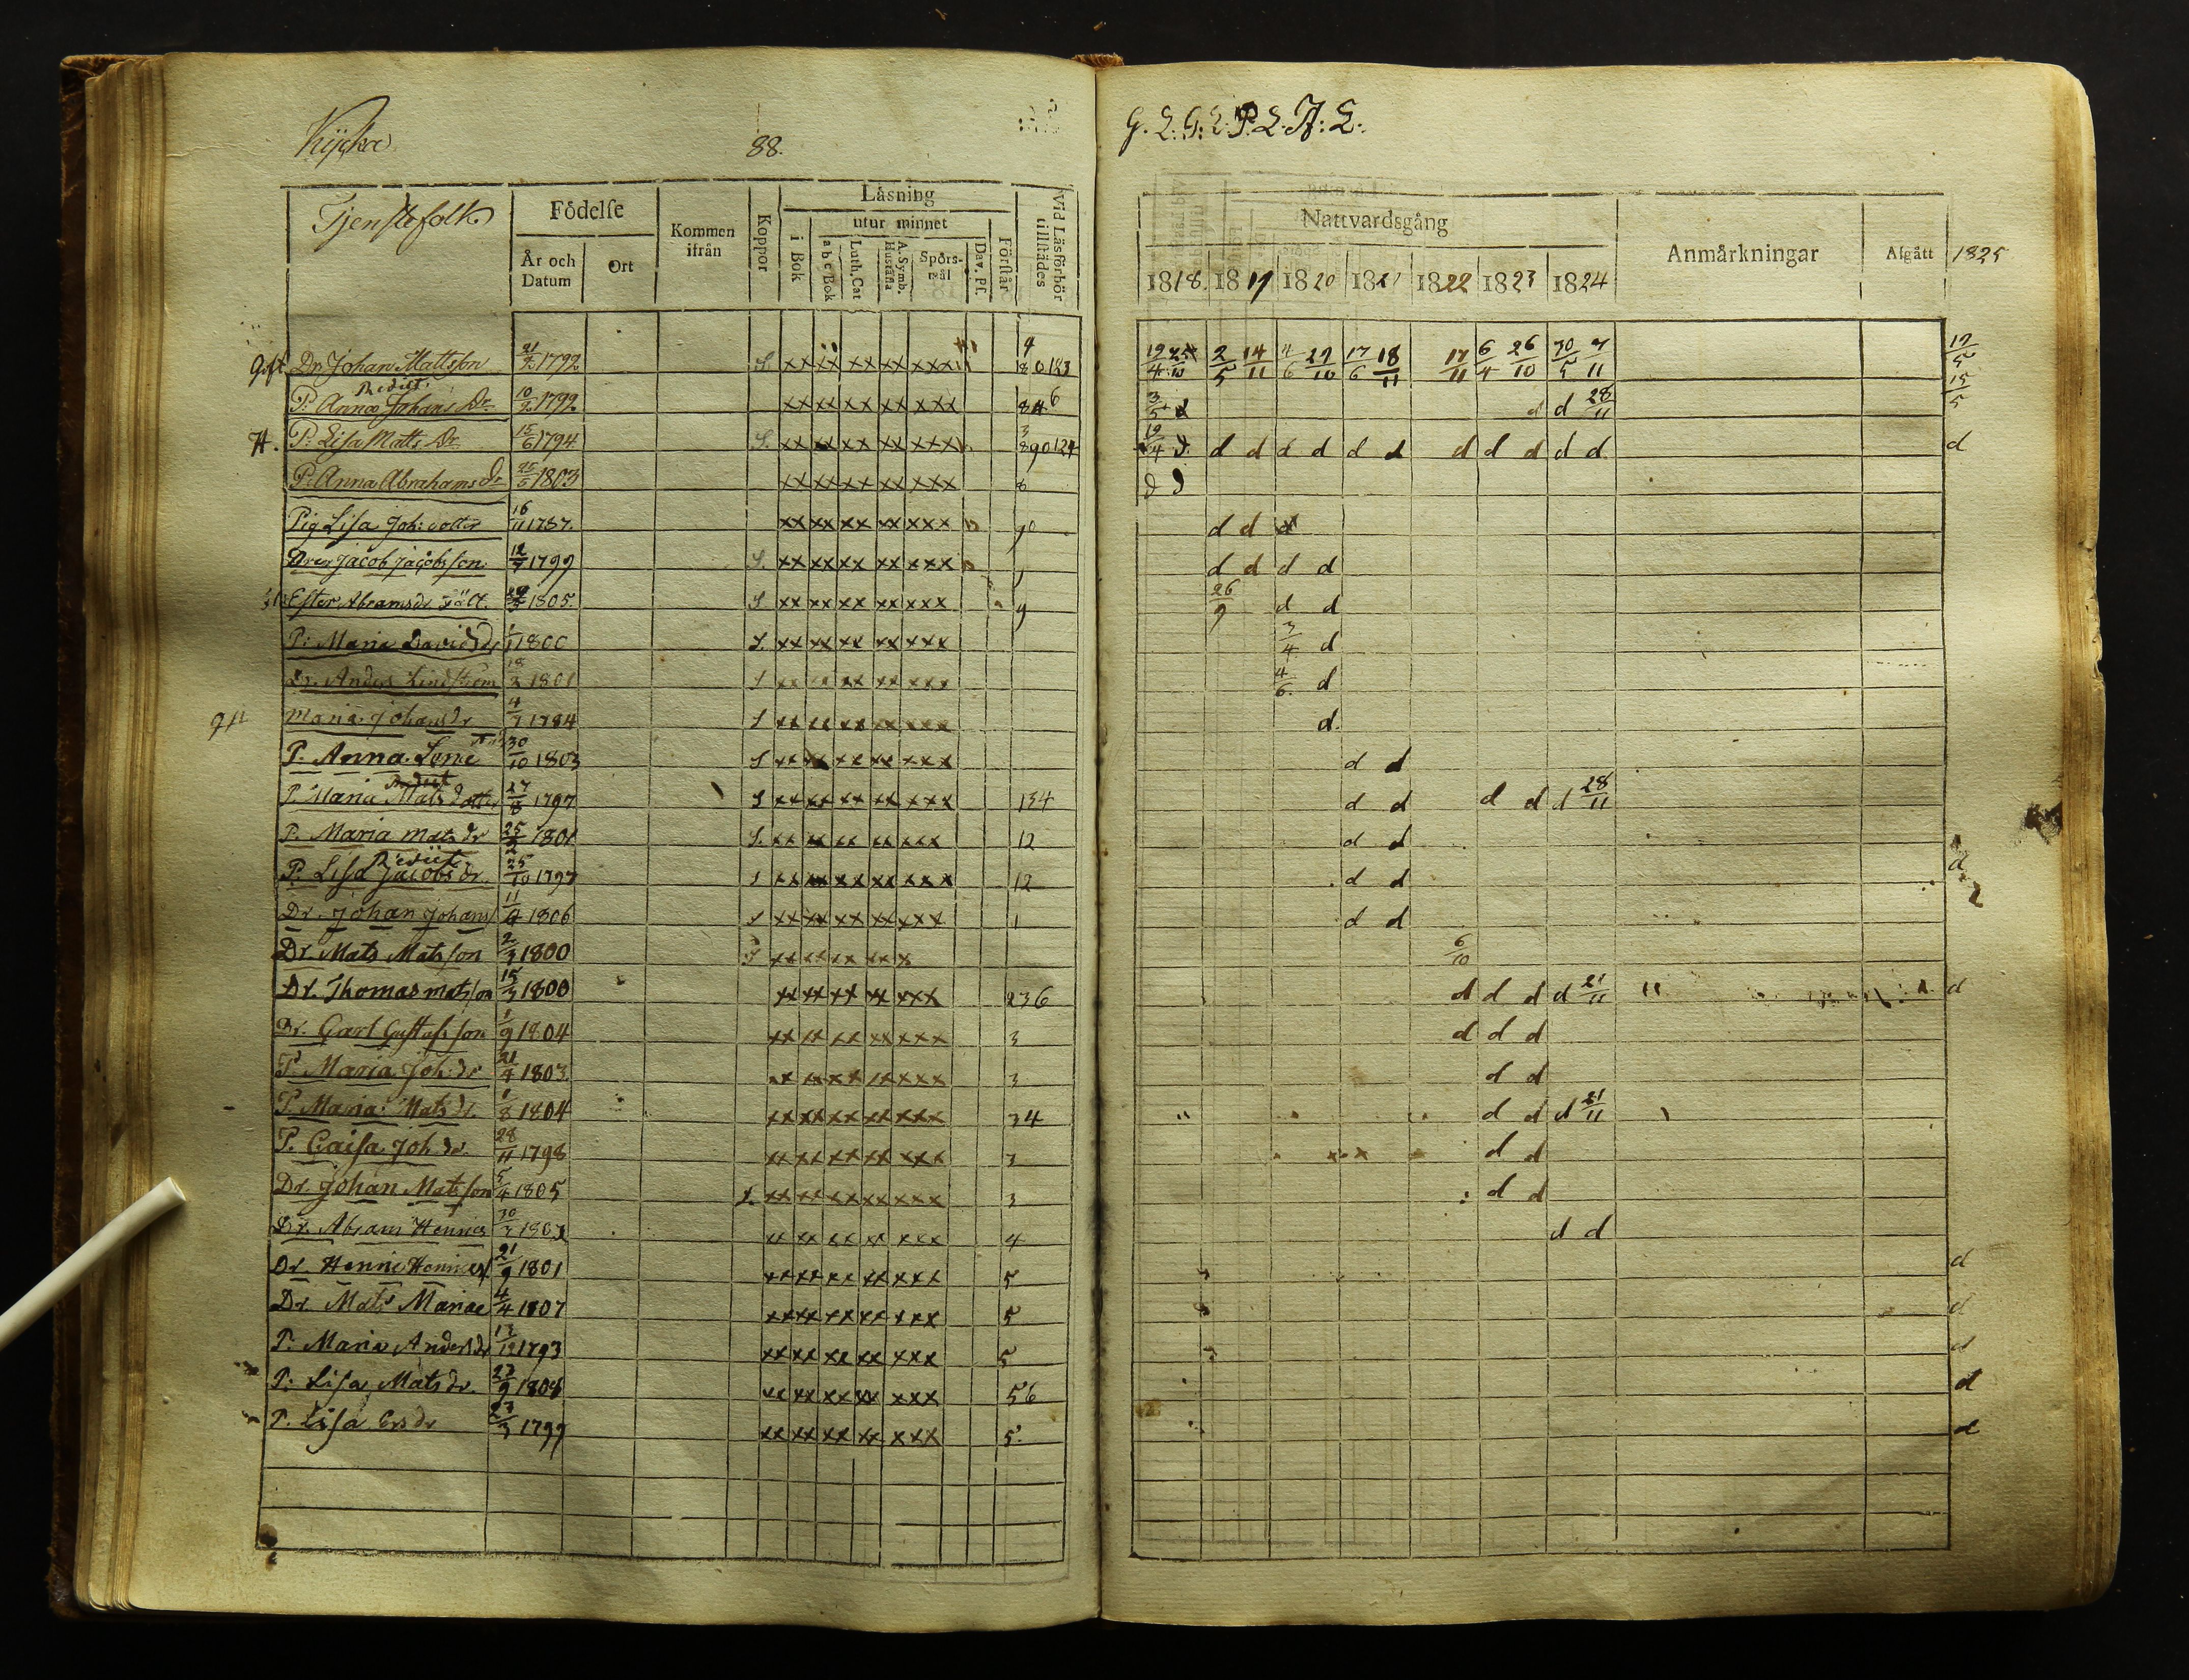 88.
G. L. G: L. P. L. A: L.
Tjenstefolk
Födelse
År och Datum
Ort
Kommen ifrån
Koppor
Läsning
utur minnet
i Bok
a b c Bok
Luth. Cat
A. Symb. Hustafla
Spörs-mål
Dav. Ps.
Förstår
Vid Läsförhör tillstädes
Nattvardsgång
1818. 1819 1820 1821 1822 1823 1824
Anmärkningar
Afgått
1825
gift Dr. Johan Mattsson 21/2 1792 S. xx xx xx xx xxx 4 8 0 123 19/4 25/10 2/5 14/11 4/6 29/10 17/6 18/11 17/11 6/4 26/10 30/5 7/11 12/5
P: Anna Johans Dr. 10/2 1792 xx xx xx xx xxx 3/5 d d 28/11 15/5
H. P: Lisa Matts Dr. 15/6 1794 S. xx xx xx xx xxx 3 890124 19/4 d. d d d d d d d d d d d d
P. Anna Abrahams Dr 25/5 1803 xx xx xx xx xxx 8 d d
Pig Lisa Joh: dotter 16/11 xx xx xx xx xxx 90 d d
Dren Jacob Jacobsson 12/7 1799 S. xx xx xx xx xxx d d d d
Ester Abramsdr 1805. S xx xx xx xx xxx 9 26/9 d d
P: Maria Davidsdr 1800 S. xx xx xx xx xxx 3/4 d
Dr. Anders Lindström 1801 S xx xx xx xx xxx 4/6. d
gift Maria Johansdr 4/7 1784 S xx xx xx xx xxx d.
P. Anna 30/10 1803 S xx xx xx xx xxx d d
P. Maria Matsdotter 27/8 1797 S xx xx xx xx xxx 134 d d d d d 28/11
P. Maria Mats dr 25/2 1801 S. xx xx xx xx xxx 12 d d
P. Lisa Jacobs dr. 25/10 1797 S xx xx xx xx xxx 12 d d d
Dr. Johan Johans 11/4 1806 S xx xx xx xx xxx 1 d d
Dr. Mats Matsson 2/3 1800 S xx xx xx xx x 6/10
Dr. Thomas Matsson 15/3 1800 xx xx xx xx xxx 236 d d d d 21/11 d
Dr. Carl Gustafsson 1/9 1804 xx xx xx xx xxx 3 d d d
P. Maria Joh: dr 21/4 1803. xx xx xx xx xxx 3 d d
P. Maria Mats dr. 1/8 1804 xx xx xx xx xxx 34 d d d 21/11
P. Caisa Joh dr. 28/11 1798 xx xx xx xx xxx 3 d d
Dr. Johan Matsson 5/4 1805 S. xx xx xx xx xxx 3 d d
Dr. Abram Hennics 30/3 xx xx xx xx xxx 4 d d
Dr. Henric Hennics 21/9 1801 xx xx xx xx xxx 5 d
Dr. Mats Mariae 4/4 1807 xx xx xx xx xxx 5 d
P. Maria Andersdr 13/12 1793 xx xx xx xx xxx 5 d
P: Lisa Mats dr. 27/9 xx xx xx xx xxx 56 d
P. Lisa Ers dr 23/3 1799 xx xx xx xx xxx 5. d